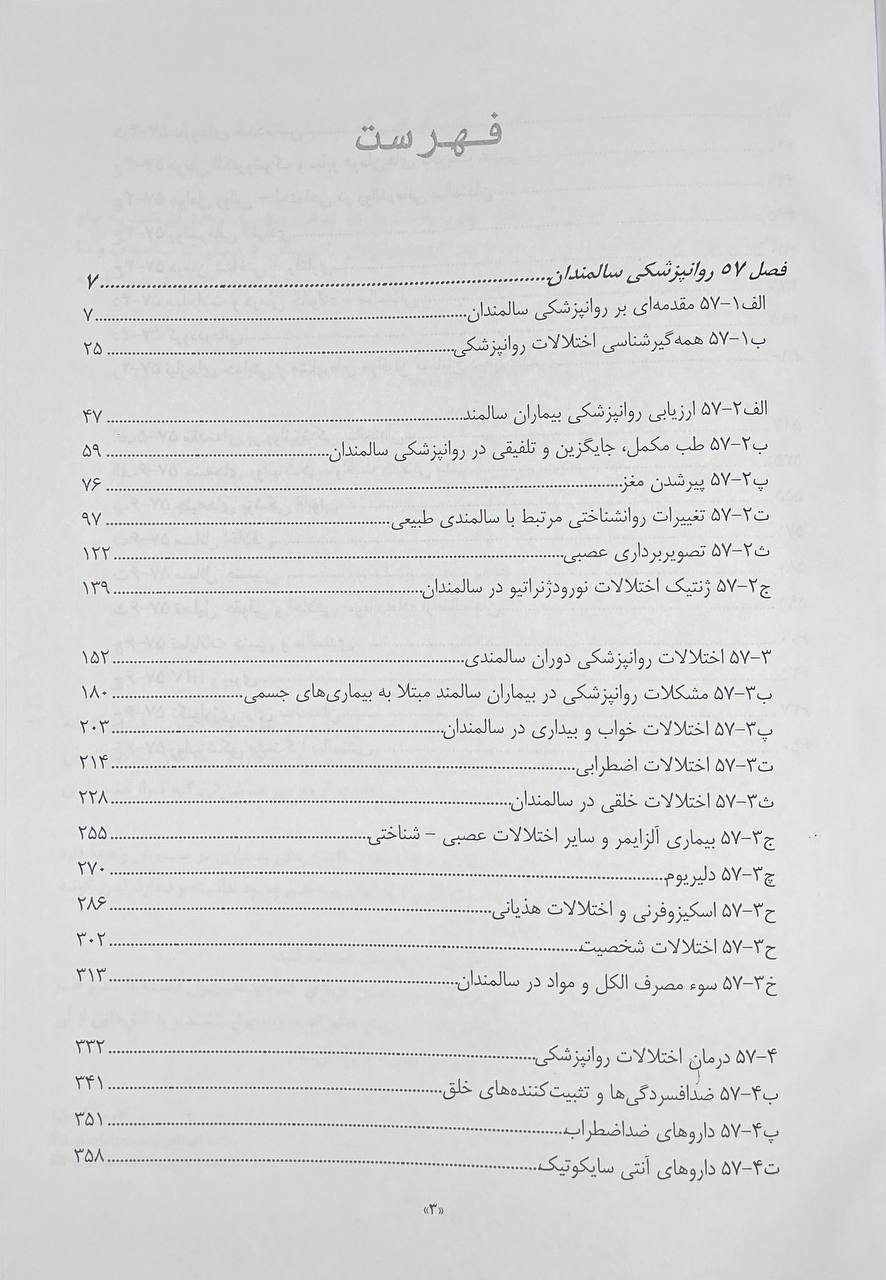 فهرست
فصل ۵۷ روانپزشکی سالمندان........................۷
الف۱-۵۷ مقدمه‌ای بر روانپزشکی سالمندان........................۷
ب۱-۵۷ همه‌گیرشناسی اختلالات روانپزشکی........................۲۵
الف۲-۵۷ ارزیابی روانپزشکی بیماران سالمند........................۴۷
ب۲-۵۷ طب مکمل، جایگزین و تلفیقی در روانپزشکی سالمندان........................۵۹
پ۲-۵۷ پیرشدن مغز........................۷۶
ت۲-۵۷ تغییرات روانشناختی مرتبط با سالمندی طبیعی........................۹۷
ث۲-۵۷ تصویربرداری عصبی........................۱۲۲
ج۲-۵۷ ژنتیک اختلالات نورودژنراتیو در سالمندان........................۱۳۹
۳-۵۷ اختلالات روانپزشکی دوران سالمندی........................۱۵۲
ب۳-۵۷ مشکلات روانپزشکی در بیماران سالمند مبتلا به بیماری‌های جسمی........................۱۸۰
پ۳-۵۷ اختلالات خواب و بیداری در سالمندان........................۲۰۳
ت۳-۵۷ اختلالات اضطرابی........................۲۱۴
ث۳-۵۷ اختلالات خلقی در سالمندان........................۲۲۸
ج۳-۵۷ بیماری آلزایمر و سایر اختلالات عصبی - شناختی........................۲۵۵
چ۳-۵۷ دلیریوم........................۲۷۰
ح۳-۵۷ اسکیزوفرنی و اختلالات هذیانی........................۲۸۶
ح۳-۵۷ اختلالات شخصیت........................۳۰۲
خ۳-۵۷ سوء مصرف الکل و مواد در سالمندان........................۳۱۳
۴-۵۷ درمان اختلالات روانپزشکی........................۳۳۲
ب۴-۵۷ ضدافسردگی‌ها و تثبیت‌کننده‌های خلق........................۳۴۱
پ۴-۵۷ داروهای ضداضطراب........................۳۵۱
ت۴-۵۷ داروهای آنتی سایکوتیک........................۳۵۸
«۳»